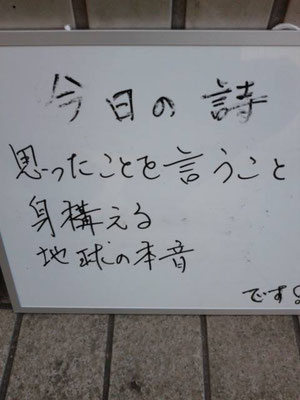 今日の詩
思ったことを言うこと
身構える
地球の本音
です